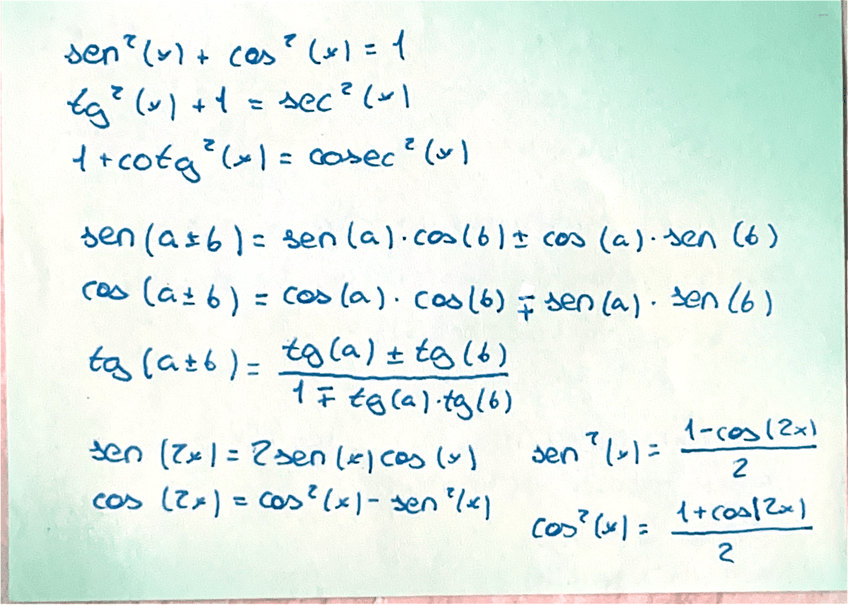 sen²(x) + cos²(x) = 1
tg²(x) + 1 = sec²(x)
1 + cotg²(x) = cosec²(x)
sen(a±b) = sen(a)·cos(b) ± cos(a)·sen(b)
cos(a±b) = cos(a)·cos(b) ∓ sen(a)·sen(b)
tg(a±b) = (tg(a) ± tg(b)) / (1 ∓ tg(a)·tg(b))
sen(2x) = 2sen(x)cos(x)
cos(2x) = cos²(x) - sen²(x)
sen²(x) = (1-cos(2x)) / 2
cos²(x) = (1+cos(2x)) / 2